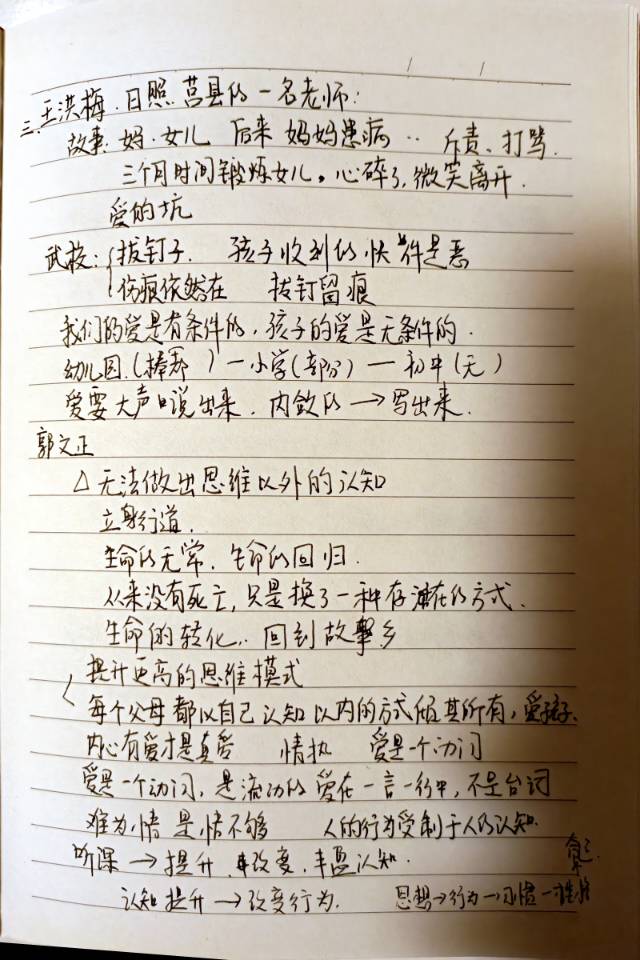 三、王洪梅、日照莒县的一名老师:
故事: 妈、女儿 后来 妈妈患病 ‥ 斥责、打骂.
三个月时间锻炼女儿。心碎了, 微笑离开.
爱的坑
武校: 拔钉子. 孩子收到的快件是恶
伤痕依然在 拔钉留痕
我们的爱是有条件的, 孩子的爱是无条件的.
幼儿园.(捧那 ) — 小学(部分) — 初中(无)
爱要大声说出来. 内敛的 → 写出来.
郭文正
△ 无法做出思维以外的认知
立身行道.
生命的无常. 生命的回归.
从来没有死亡, 只是换了一种存在的方式.
生命的转化.. 回到故乡
提升更高的思维模式
每个父母都以自己认知以内的方式倾其所有, 爱孩子.
内心有爱才是真爱 情执 爱是一个动词
爱是一个动词, 是流动的 爱在一言一行中, 不是台词
难为情是情不够 人的行为受制于人的认知.
听课 → 提升、改变、丰盈认知.
认知提升 → 改变行为. 思想→行为→习惯→性格